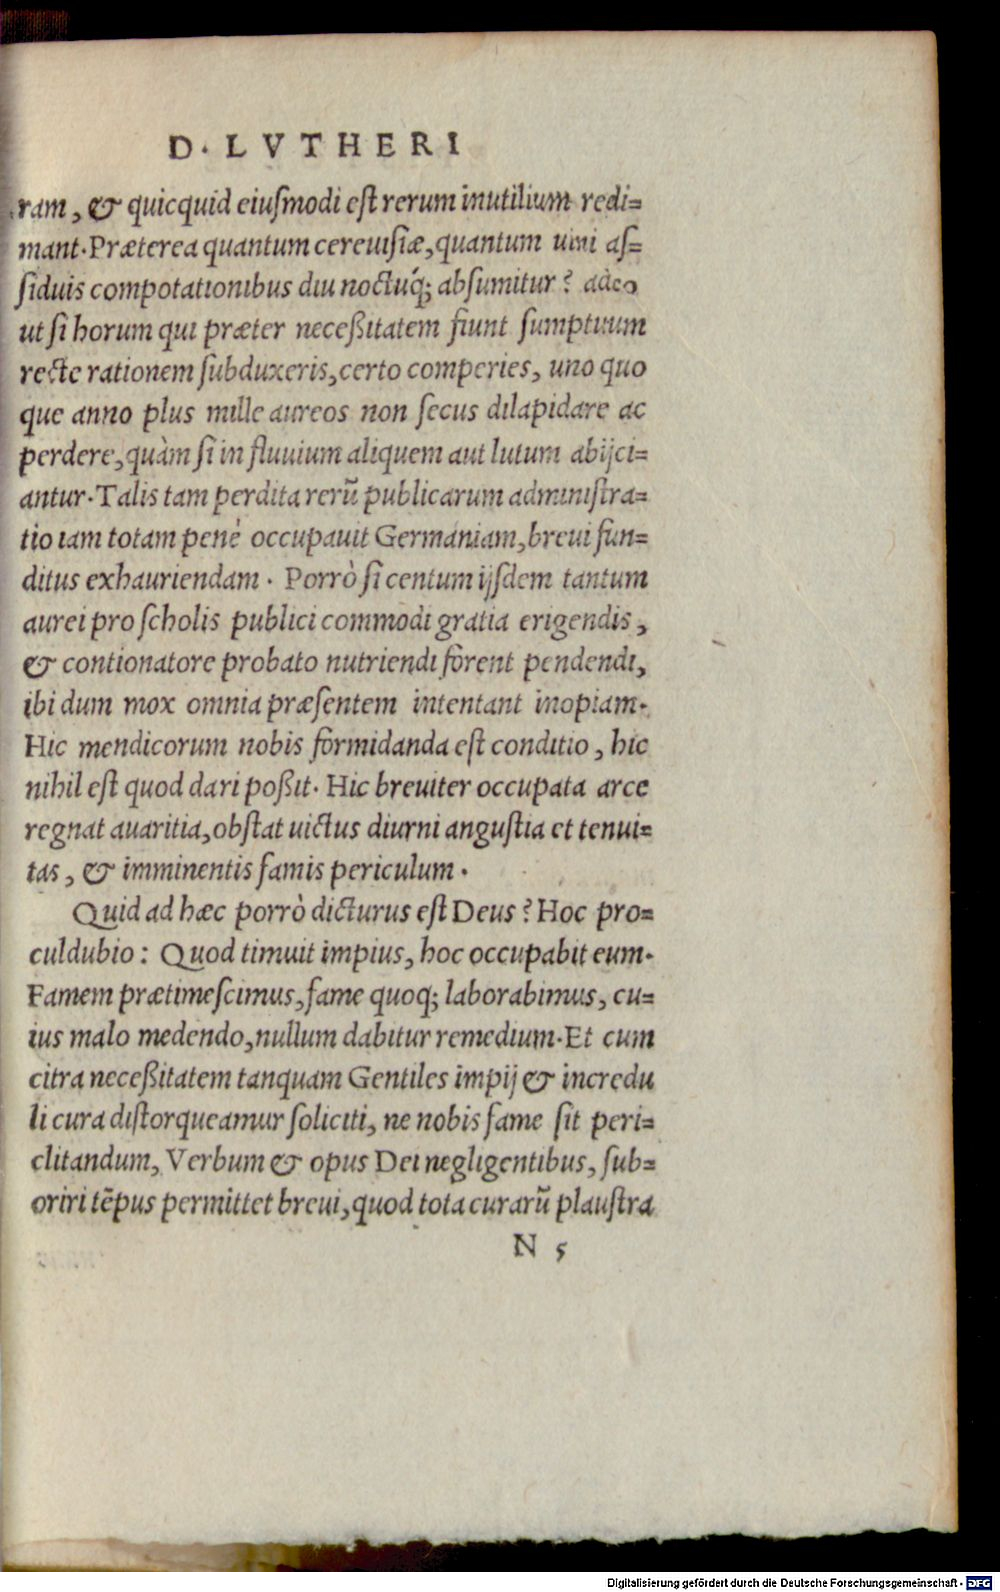 D. LVTHERI
ram, & quicquid eiuſmodi eſt rerum inutilium redi=
mant. Præterea quantum cereuiſiæ, quantum uini aſ=
ſiduis compotationibus diu noctuq́; abſumitur? adeo
ut ſi horum qui præter neceßitatem fiunt ſumptuum
recte rationem ſubduxeris, certo comperies, uno quo
que anno plus mille aureos non ſecus dilapidare ac
perdere, quàm ſi in fluuium aliquem aut lutum abijci=
antur. Talis tam perdita rerū publicarum adminiſtra=
tio iam totam penè occupauit Germaniam, breui fun=
ditus exhauriendam. Porrò ſi centum ijſdem tantum
aurei pro ſcholis publici commodi gratia erigendis,
& contionatore probato nutriendi forent pendendi,
ibi dum mox omnia præſentem intentant inopiam.
Hic mendicorum nobis formidanda eſt conditio, hic
nihil eſt quod dari poßit. Hic breuiter occupata arce
regnat auaritia, obſtat uictus diurni anguſtia et tenui=
tas, & imminentis famis periculum.
Quid ad hæc porrò dicturus eſt Deus? Hoc pro=
culdubio: Quod timuit impius, hoc occupabit eum.
Famem prætimeſcimus, fame quoq; laborabimus, cu=
ius malo medendo, nullum dabitur remedium. Et cum
citra neceßitatem tanquam Gentiles impij & incredu
li cura diſtorqueamur ſoliciti, ne nobis fame ſit peri=
clitandum, Verbum & opus Dei negligentibus, ſub=
oriri tēpus permittet breui, quod tota curarū plauſtra
N 5
Digitalisierung gefördert durch die Deutsche Forschungsgemeinschaft - DFG